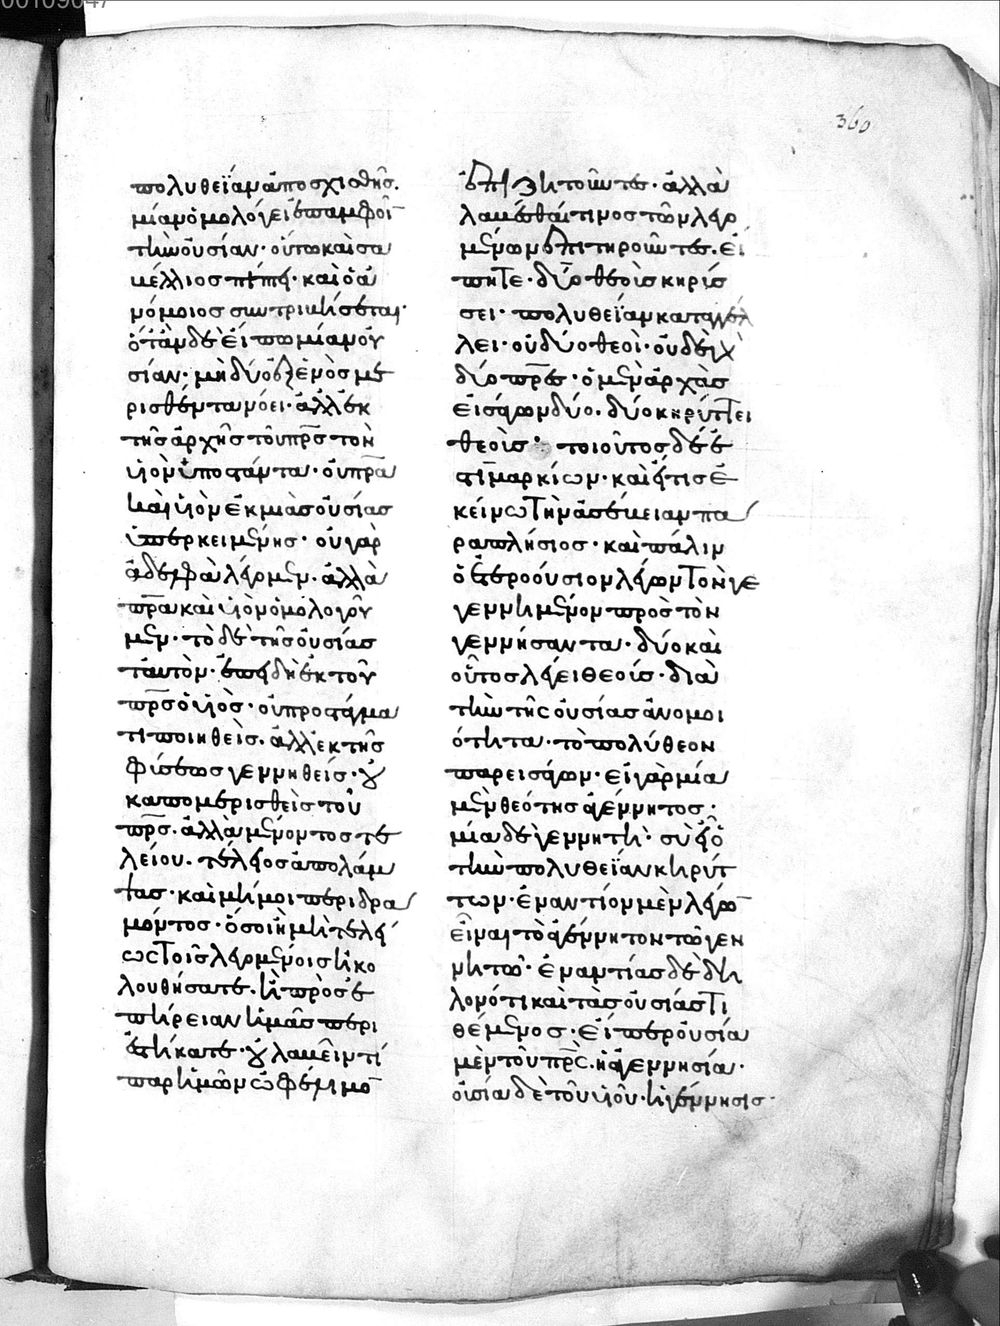 00109047
360
πολυθεΐαν ἀποσχισθῆς.
μίαν ὁμολόγει ἐπ' ἀμφοῖ
τὴν οὐσίαν· οὕτω καὶ σα
βέλλιος πίπτει· καὶ ὁ ἀ
νόμοιος συντριβήσεται·
ὅταν δὲ εἴπω μίαν οὐ
σίαν· μὴ δύο ἐξ ἑνὸς με
ρισθέντα νόει· ἀλλ' ἐκ
τῆς ἀρχῆς τοῦ πρς τὸν
υἱὸν ὑποστάντα· οὐ πρα
καὶ υἱὸν ἐκ μιᾶς οὐσίας
ὑπερκειμένης· οὐ γὰρ
ἀδελφὰ λέγομεν· ἀλλὰ
πρα καὶ υἱὸν ὁμολογοῦ
μεν· τὸ δὲ τῆς οὐσίας
ταυτὸν· ἐπειδὴ ἐκ τοῦ
πρς ὁ υἱὸς· οὐ προστάγμα
τι ποιηθεὶς. ἀλλ' ἐκ τῆς
φύσεως γεννηθείς· οὐ
κ ἀπομερισθεὶς τοῦ
πρς. ἀλλὰ μένοντος τε
λείου. τέλειος ἀπολάμ
ψας· καὶ μή μοι περιδρα
μόντος· ὅσοι ἢ μὴ τελεί
ως τοῖς λεγομένοις ἠκο
λουθήσατε. ἢ πρὸς ἐ
πήρειαν ἡμᾶς περι
εστήκατε· οὐ λαβεῖν τί
παρ' ἡμῶν ὠφέλιμο
ἐπιζητοῦντες· ἀλλὰ
λαβέσθαι τινος τῶν λεγο
μένων ἐπιτηροῦντες. εἴ
πητε· δύο θεοὺς κηρύσ
σει· πολυθεΐαν καταγγέλ
λει· οὐ δύο θεοὶ· οὐδὲ γὰ
δύο πρες· ὁ μὲν ἀρχὰς
εἰσάγων δύο. δύο κηρύττει
θεοὺς· τοιοῦτος δέ ἐ
στιν μαρκίων· καὶ εἴ τις ἐ
κείνω τὴν ἀσέβειαν πα
ραπλήσιος· καὶ πάλιν
ὁ ἑτεροούσιον λέγων τὸν γε
γεννημένον πρὸς τὸν
γεννήσαντα· δύο καὶ
οὗτος λέγει θεοὺς· διὰ
τὴν τῆς οὐσίας ἀνομοι
ότητα. τὸ πολύθεον
παρεισάγων· εἰ γὰρ μία
μὲν θεότης ἀγέννητος·
μία δὲ γεννητὴ· σὺ εἶ ὁ
τὴν πολυθεΐαν κηρύτ
των· ἐναντίον μὲν λέγω
εἶναι τὸ ἀγέννητον τῶ γεν
νητῶ· ἐναντίας δὲ δη
λονότι καὶ τὰς οὐσίας τι
θέμενος· εἴπερ οὐσία
μὲν τοῦ πρς. ἡ ἀγεννησία·
οὐσία δὲ τοῦ υἱοῦ· ἡ γέννησις·